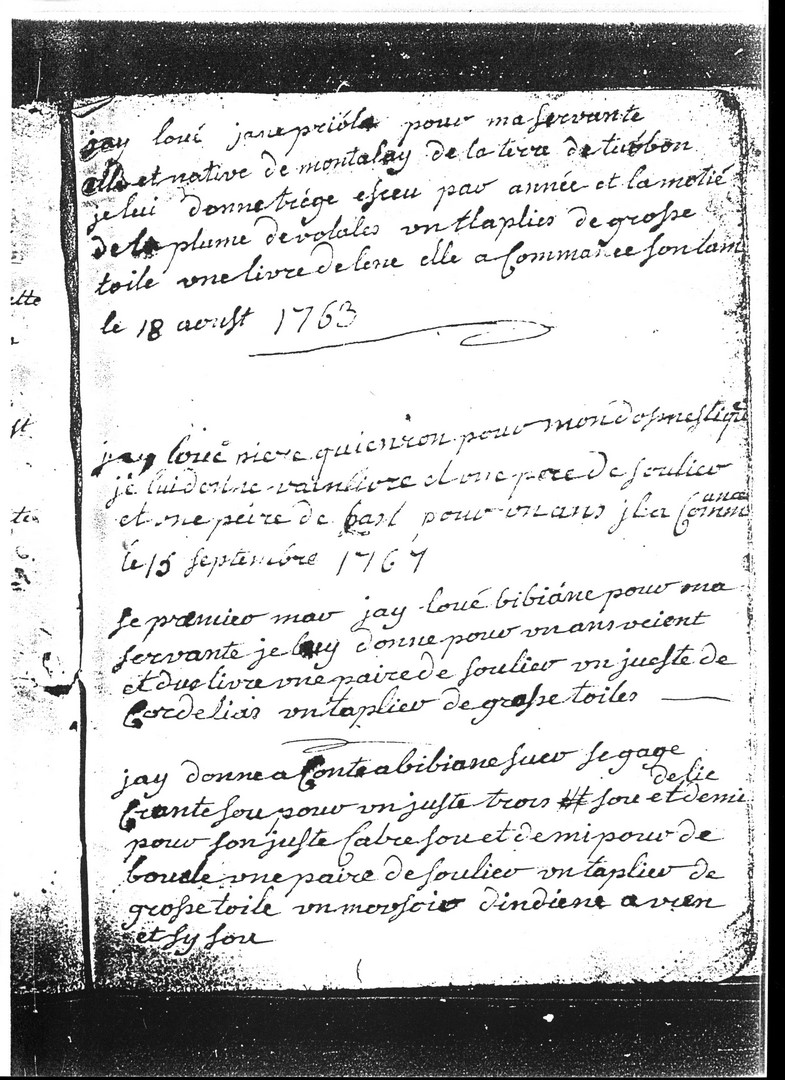 jay loué jane priola pour ma servante
elle et native de montalay de la terre de tusbon
je lui donne trége escu par année et la motié
de la plume de volales un tlaplies de grosse
toile une livre de lene elle a Commancee son lam
le 18 aoust 1763
jay loué piere quienron pour mon domestique
je lui donne vain livre et une pere de soulier
et une peire de bast pour un ans jl a Comm
ancé
le 15 septembre 1767
le premier mar jay loué bibiane pour ma
servante je luy donne pour un ans veient
et due livre une paire de soulier un jueste de
Cordelias un taplier de grosse toiles
jay donne a Conte a bibiane suer se gage
de lie
Crante sou pour un juste trois ## sou et demi
pour son juste Catre sou et demi pour de
boucle une paire de soulier un taplier de
grosse toile un mousoir dindiene a vien
et sy sou
ette
st
te